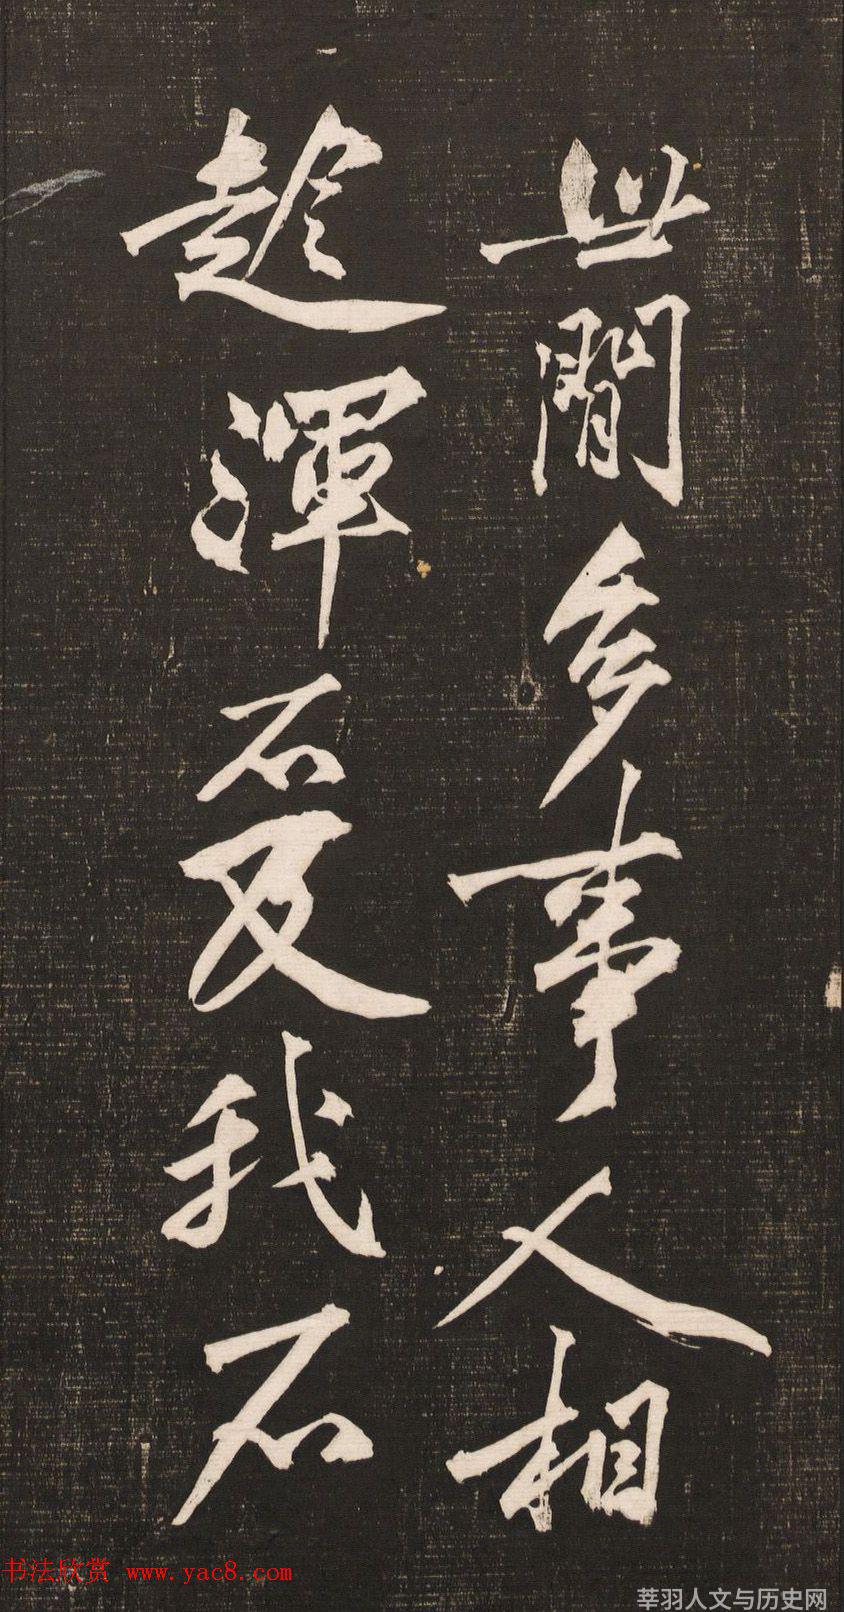 世間多事人相
趂渾不及我不
书法欣赏 www.yac8.com
莘羽人文与历史网